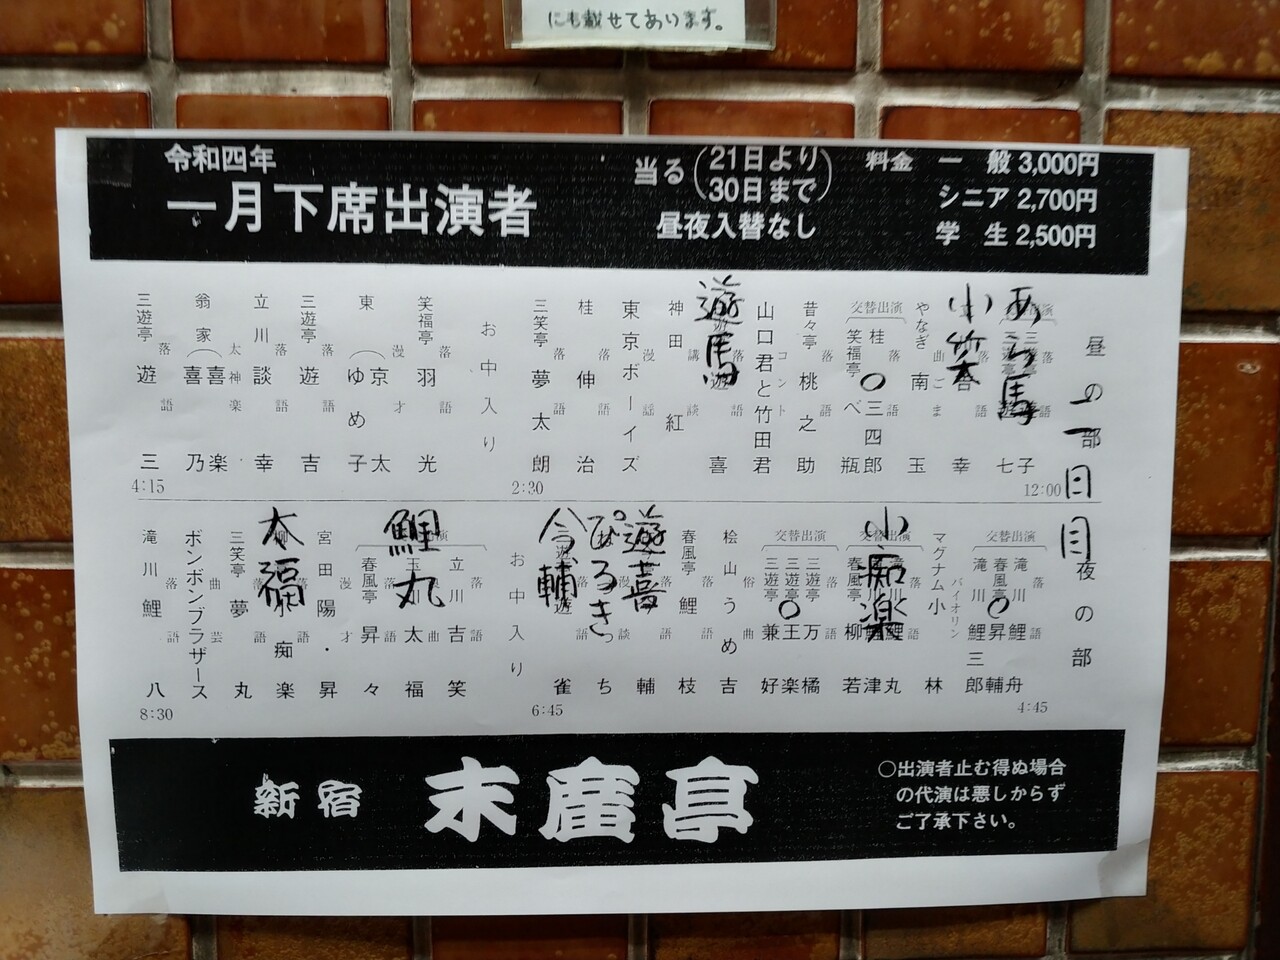 にも載せてあります。
令和四年
一月下席出演者
当る(21日より30日まで)
昼夜入替なし
料金 一般 3,000円
シニア 2,700円
学生 2,500円
昼の部
一日目
12:00
交替出演
あら馬
小笑
やなぎ 南玉 曲ごま
交替出演
桂 三四郎 落語
笑福亭 べ瓶
昔々亭 桃之助 落語
山口君と竹田君 コント
遊馬
神田 紅 講談
東京ボーイズ 漫謡
桂 伸治 落語
三笑亭 夢太朗 落語
2:30
お中入り
笑福亭 羽光 落語
東 京太 ゆめ子 漫才
三遊亭 遊吉 落語
立川 談幸 落語
翁家 喜楽 喜乃 太神楽
三遊亭 遊三 落語
4:15
夜の部
4:45
交替出演
滝川 鯉舟 落語
春風亭 昇輔
滝川 鯉三郎
マグナム小林 バイオリン
交替出演
小痴楽
交替出演
三遊亭 万橘 落語
三遊亭 王楽
三遊亭 兼好
桧山うめ吉 俗曲
春風亭 鯉枝 落語
遊喜
ぴろき
今輔
6:45
お中入り
立川 吉笑 落語
鯉丸
春風亭 昇々 落語
宮田 陽・昇 漫才
太福
三笑亭 夢丸 落語
ボンボンブラザース 曲芸
滝川 鯉八 落語
8:30
新宿 末廣亭
○出演者止む得ぬ場合
の代演は悪しからず
ご了承下さい。